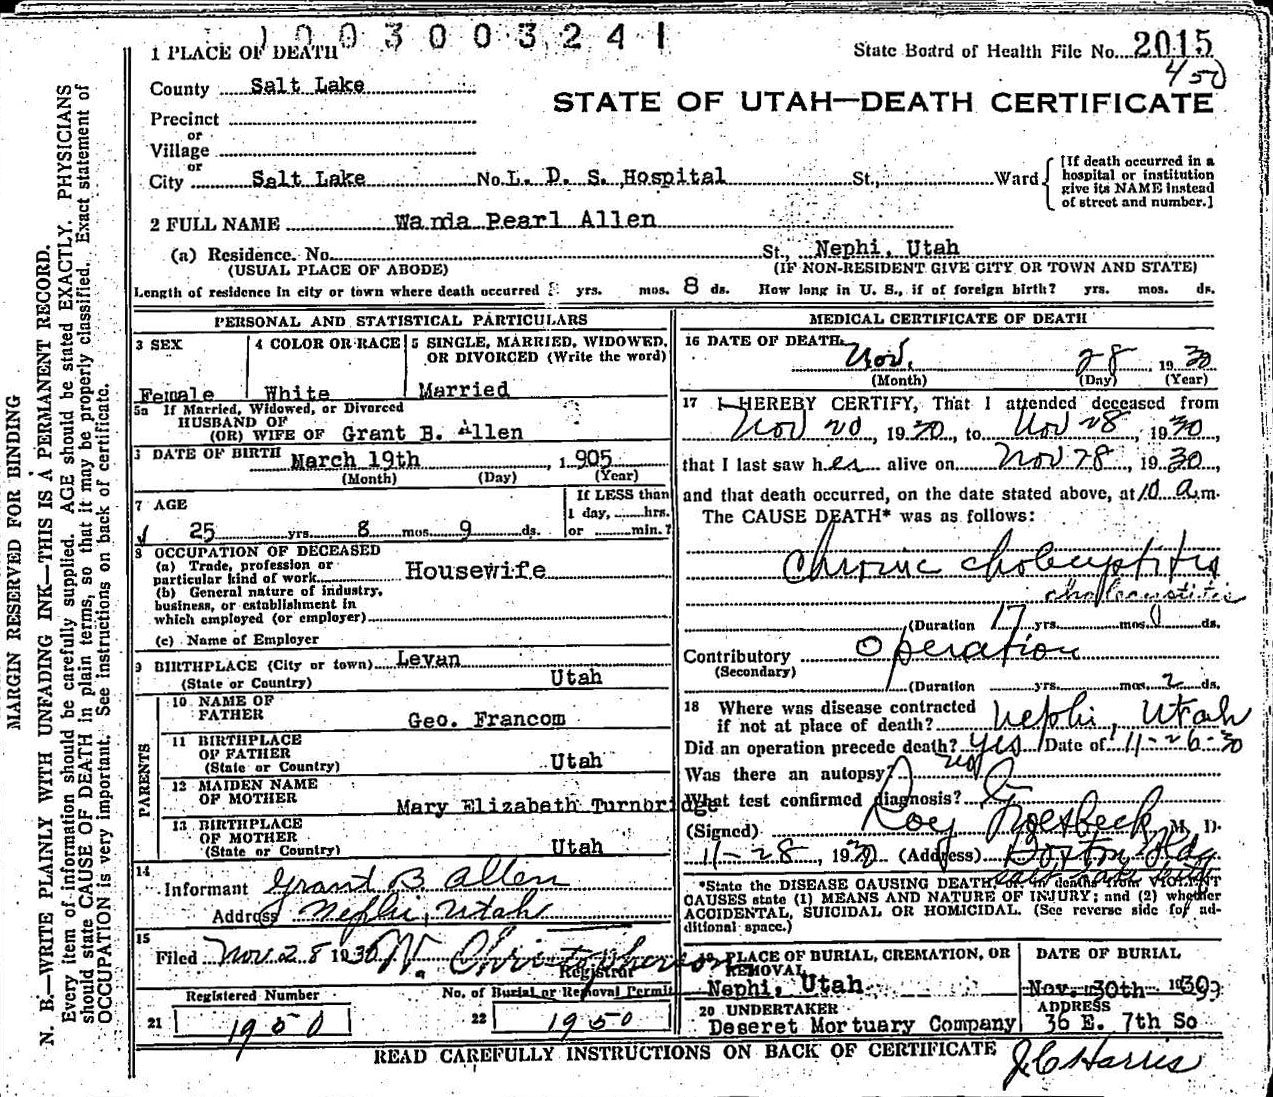 1003003241
1 PLACE OF DEATH
State Board of Health File No. 2015
450
County Salt Lake
STATE OF UTAH—DEATH CERTIFICATE
Precinct
or
Village
or
City Salt Lake No. L. D. S. Hospital St., Ward
[If death occurred in a
hospital or institution
give its NAME instead
of street and number.]
2 FULL NAME Wanda Pearl Allen
(a) Residence. No. St., Nephi, Utah
(USUAL PLACE OF ABODE) (IF NON-RESIDENT GIVE CITY OR TOWN AND STATE)
Length of residence in city or town where death occurred yrs. mos. 8 ds. How long in U. S., if of foreign birth? yrs. mos. ds.
PERSONAL AND STATISTICAL PARTICULARS
3 SEX
Female
4 COLOR OR RACE
White
5 SINGLE, MARRIED, WIDOWED,
OR DIVORCED (Write the word)
Married
5a If Married, Widowed, or Divorced
HUSBAND OF
(OR) WIFE OF Grant B. Allen
DATE OF BIRTH March 19th, 1905
(Month) (Day) (Year)
7 AGE
25 yrs. 8 mos. 9 ds.
If LESS than
1 day, hrs.
or min.?
8 OCCUPATION OF DECEASED
(a) Trade, profession or
particular kind of work Housewife
(b) General nature of industry,
business, or establishment in
which employed (or employer)
(c) Name of Employer
9 BIRTHPLACE (City or town) Levan
(State or Country) Utah
PARENTS
10 NAME OF
FATHER Geo. Francom
11 BIRTHPLACE
OF FATHER
(State or Country) Utah
12 MAIDEN NAME
OF MOTHER Mary Elizabeth Turnbridge
13 BIRTHPLACE
OF MOTHER
(State or Country) Utah
14
Informant Grant B Allen
Address Nephi, Utah
15
Filed Nov 28 1930 W. Christopherson
Registrar
Registered Number
21 1950
No. of Burial or Removal Permit
22 1950
MEDICAL CERTIFICATE OF DEATH
16 DATE OF DEATH
Nov. 28 1930
(Month) (Day) (Year)
17 I HEREBY CERTIFY, That I attended deceased from
Nov 20, 1930, to Nov 28, 1930,
that I last saw her alive on Nov 28, 1930,
and that death occurred, on the date stated above, at 10 a.m.
The CAUSE DEATH* was as follows:
Chronic cholecystitis
cholecystitis
(Duration yrs. mos. ds.
Contributory Operation
(Secondary)
(Duration yrs. mos. 2 ds.
18 Where was disease contracted
if not at place of death? Nephi, Utah
Did an operation precede death? yes Date of 11-26-30
Was there an autopsy? no
What test confirmed diagnosis?
(Signed) Roy Groesbeck M. D.
11-28, 1930 (Address) Boston Bldg
Salt Lake City
*State the DISEASE CAUSING DEATH, or, in deaths from VIOLENT
CAUSES state (1) MEANS AND NATURE OF INJURY; and (2) whether
ACCIDENTAL, SUICIDAL OR HOMICIDAL. (See reverse side for ad-
ditional space.)
19 PLACE OF BURIAL, CREMATION, OR
REMOVAL
Nephi, Utah
DATE OF BURIAL
Nov. 30th 1930
20 UNDERTAKER
Deseret Mortuary Company
ADDRESS
36 E. 7th So
READ CAREFULLY INSTRUCTIONS ON BACK OF CERTIFICATE
J C Harris
MARGIN RESERVED FOR BINDING
N. B.—WRITE PLAINLY WITH UNFADING INK—THIS IS A PERMANENT RECORD.
Every item of information should be carefully supplied. AGE should be stated EXACTLY. PHYSICIANS
should state CAUSE OF DEATH in plain terms, so that it may be properly classified. Exact statement of
OCCUPATION is very important. See instructions on back of certificate.